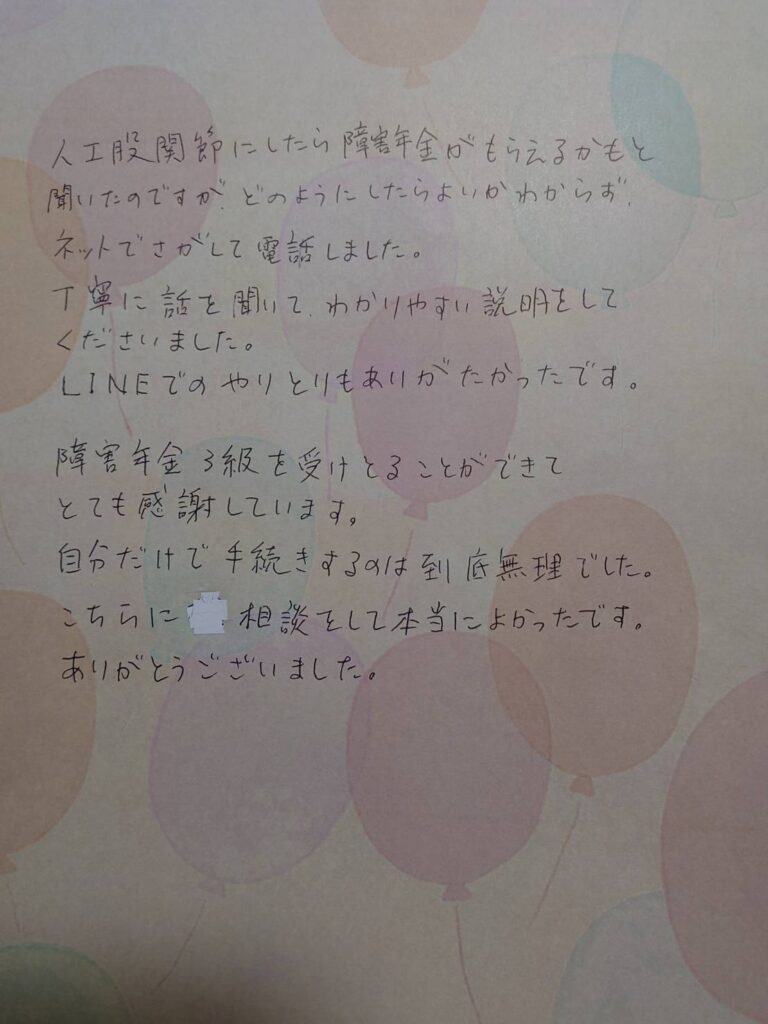 人工股関節にしたら障害年金がもらえるかもと
聞いたのですが、どのようにしたらよいかわからず、
ネットでさがして電話しました。
丁寧に話を聞いて、わかりやすい説明をして
くださいました。
LINEでのやりとりもありがたかったです。
障害年金3級を受けとることができて
とても感謝しています。
自分だけで手続きするのは到底無理でした。
こちらに 相談をして本当によかったです。
ありがとうございました。